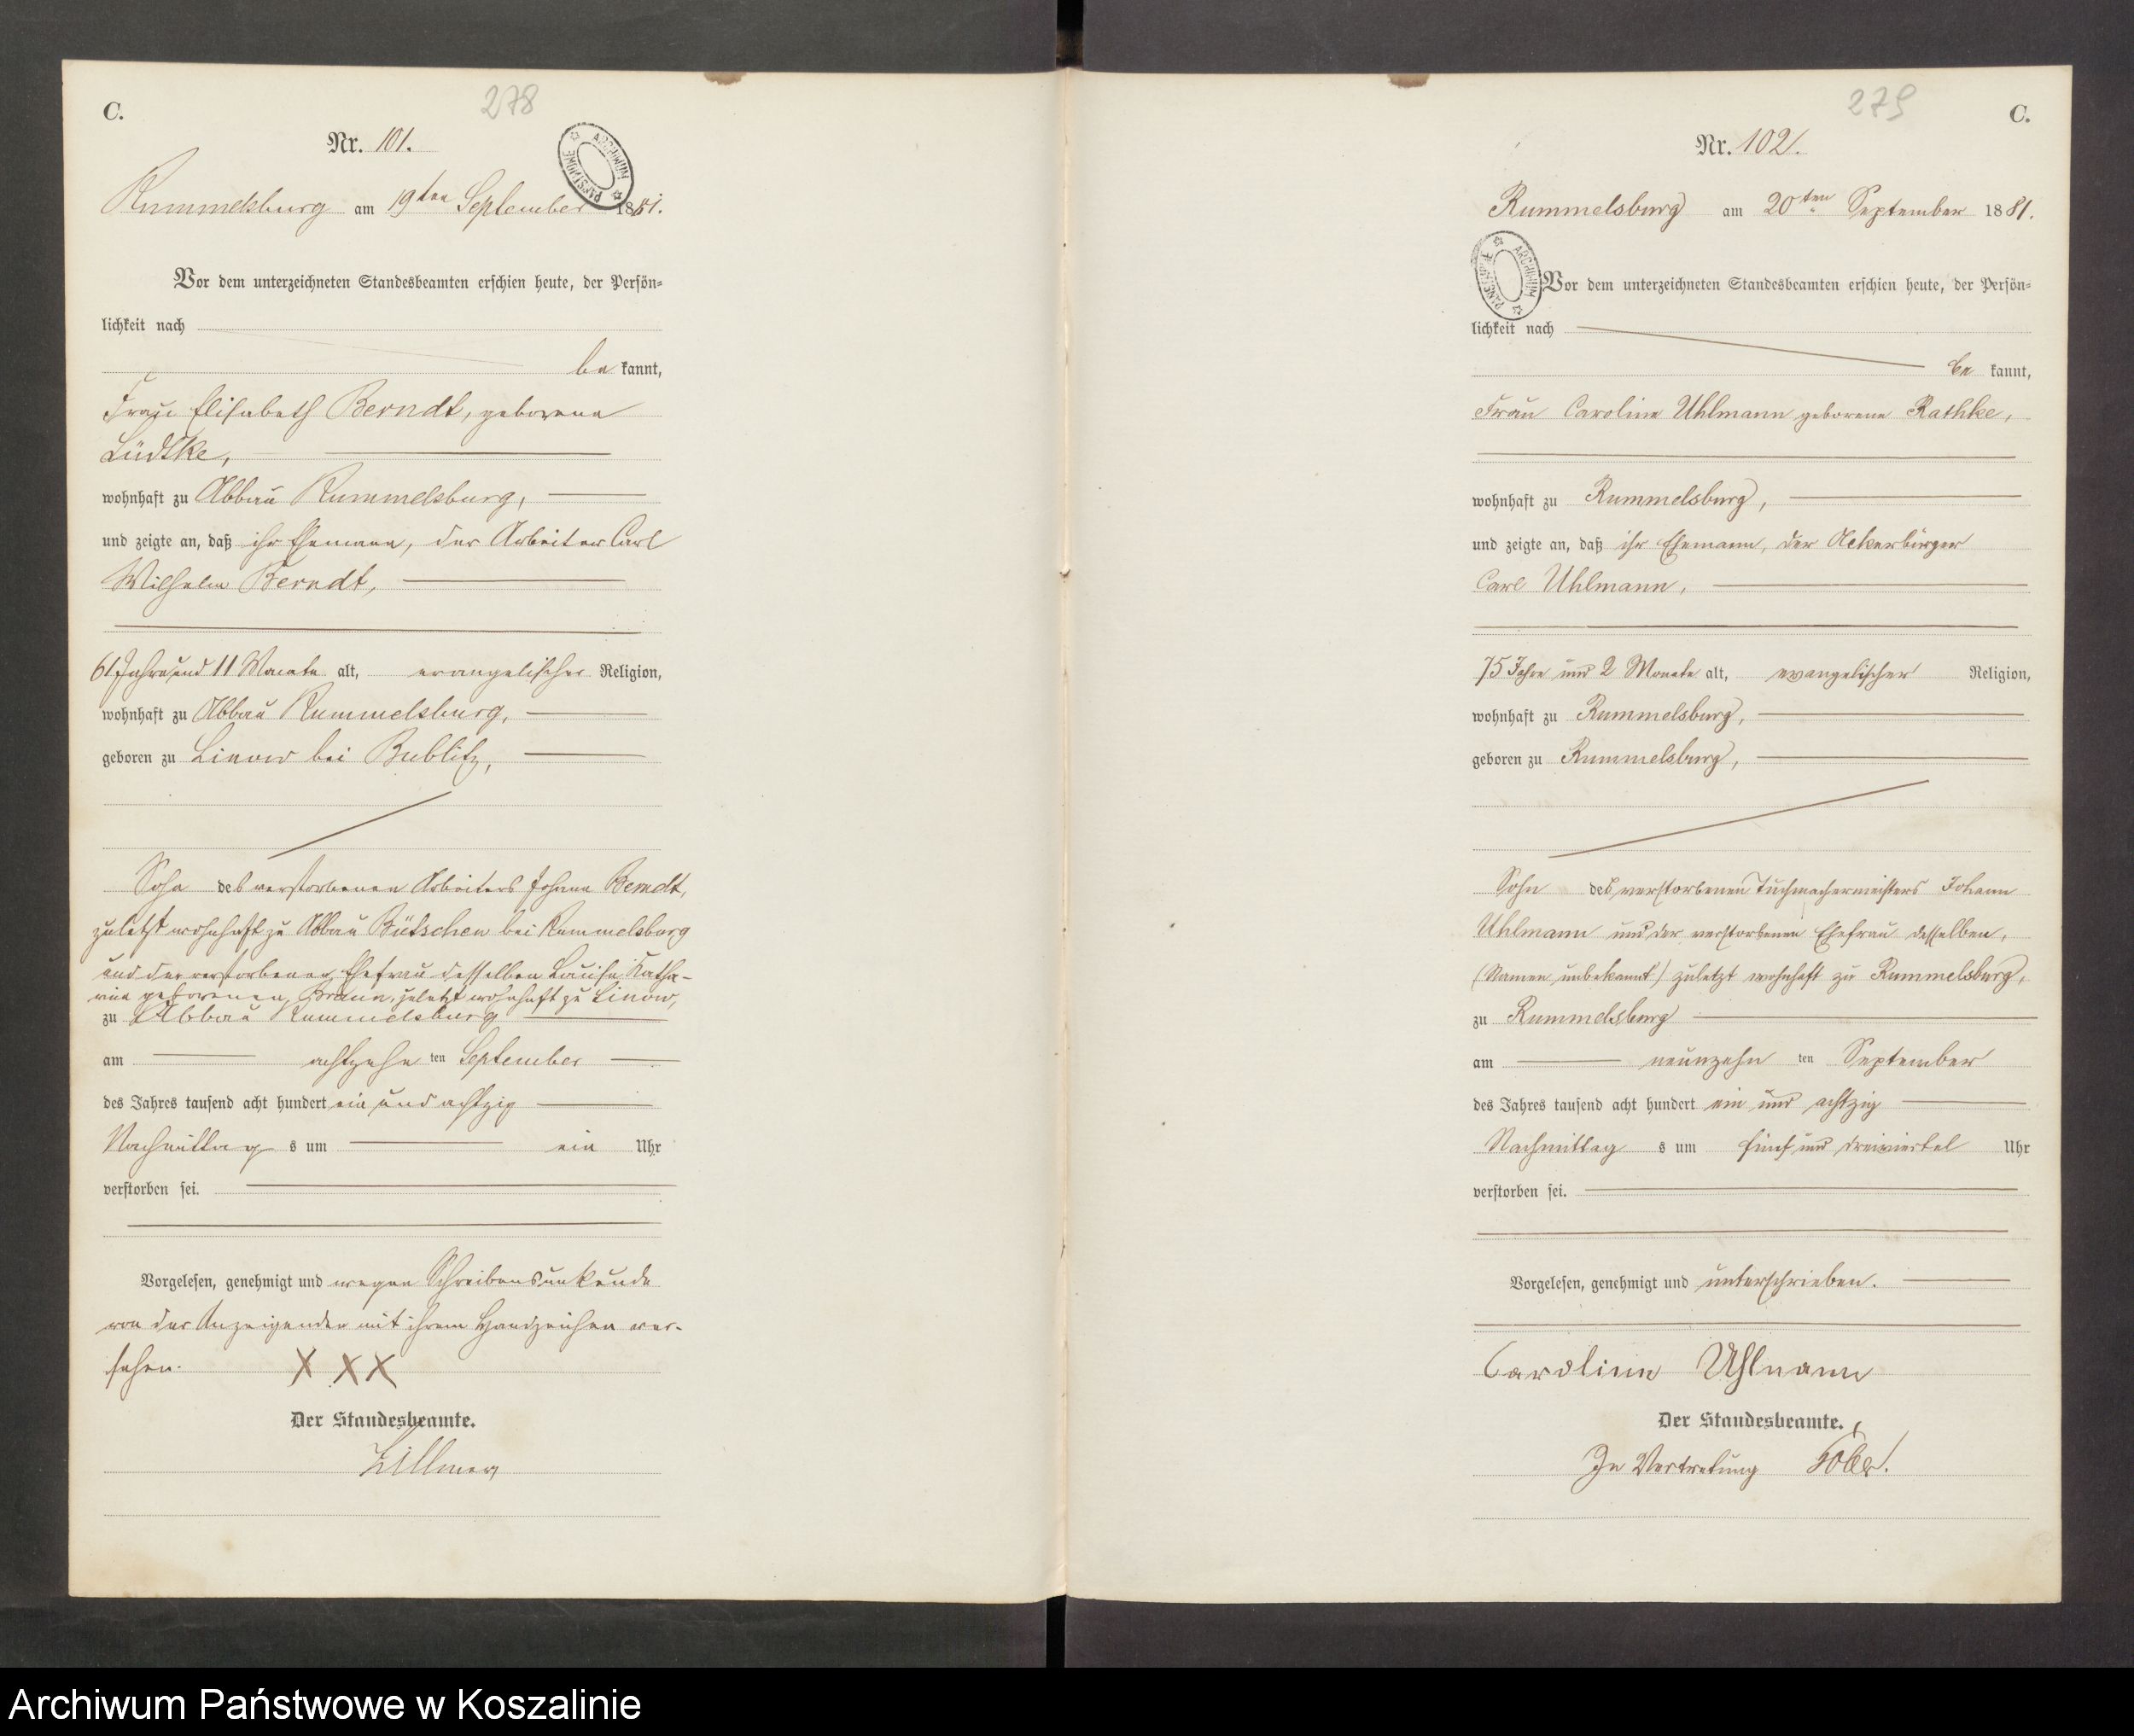 278
C.
Nr. 101.
ARCHIWUM PAŃSTWOWE
Rummelsburg am 19ten September 1881.
Vor dem unterzeichneten Standesbeamten erschien heute, der Persön-
lichkeit nach
be kannt,
Frau Elisabeth Berndt, geborene
Lüdtke,
wohnhaft zu Abbau Rummelsburg,
und zeigte an, daß ihr Ehemann, der Arbeiter Carl
Wilhelm Berndt,
61 Jahre und 11 Monate alt, evangelischer Religion,
wohnhaft zu Abbau Rummelsburg,
geboren zu Linow bei Bublitz,
Sohn des verstorbenen Arbeiters Johann Berndt,
zuletzt wohnhaft zu Abbau Bütschen bei Rummelsburg
und der verstorbenen Ehefrau desselben Louise Katha-
rine geborenen, zuletzt wohnhaft zu Linow,
zu Abbau Rummelsburg
am achtzehn ten September
des Jahres tausend acht hundert ein und achtzig
Nachmittag s um ein Uhr
verstorben sei.
Vorgelesen, genehmigt und wegen Schreibensunkunde
von der Anzeigenden mit ihrem Handzeichen ver-
sehen. X X X
Der Standesbeamte.
279
C.
Nr. 102.
Rummelsburg am 20ten September 1881.
ARCHIWUM PAŃSTWOWE
Vor dem unterzeichneten Standesbeamten erschien heute, der Persön-
lichkeit nach
be kannt,
Frau Caroline Uhlmann geborene Rathke,
wohnhaft zu Rummelsburg,
und zeigte an, daß ihr Ehemann, der Ackerbürger
Carl Uhlmann,
75 Jahre und 2 Monate alt, evangelischer Religion,
wohnhaft zu Rummelsburg,
geboren zu Rummelsburg,
Sohn des verstorbenen Tuchmachermeisters Johann
Uhlmann und der verstorbenen Ehefrau desselben,
(Namen unbekannt) zuletzt wohnhaft zu Rummelsburg,
zu Rummelsburg
am neunzehn ten September
des Jahres tausend acht hundert ein und achtzig
Nachmittag s um fünf und dreiviertel Uhr
verstorben sei.
Vorgelesen, genehmigt und unterschrieben.
Caroline Uhlmann
Der Standesbeamte.
In Vertretung
Archiwum Państwowe w Koszalinie